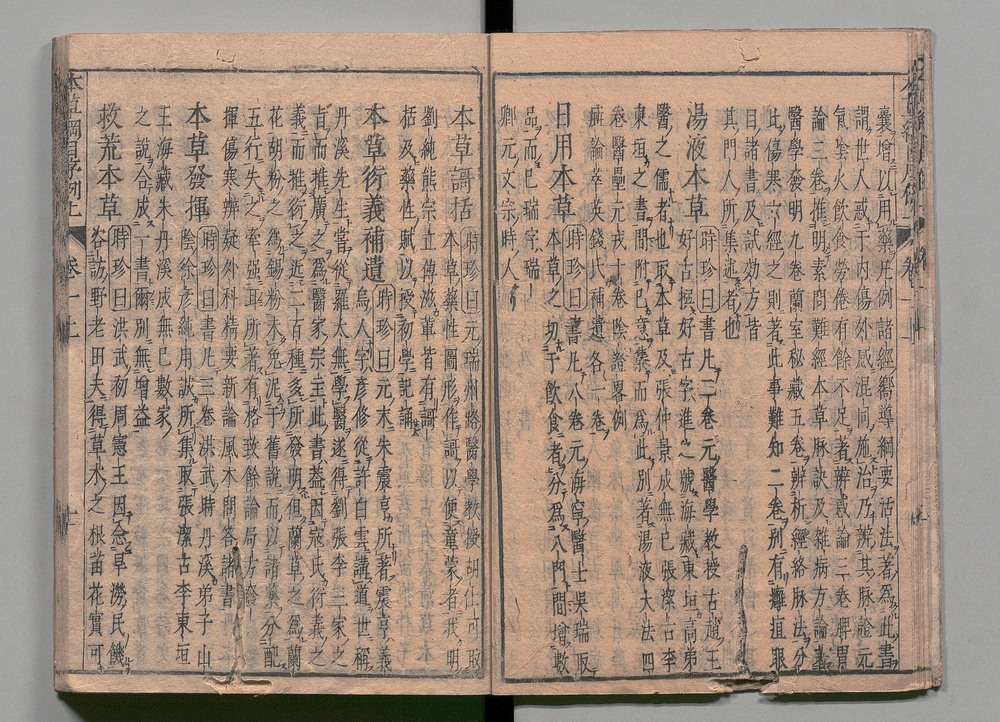 囊增以用藥凡例諸經嚮導綱要活法著爲此書
謂世人惑于內傷外感混同施治乃辨其脉證元
氣陰火飲食勞倦有餘不足著辨惑論三卷脾胃
論三卷推明素問難經本草脉訣及雜病方論著
醫學發明九卷蘭室秘藏五卷辨析經絡脉法分
此傷寒六經之則著此事難知二卷別有癰疽眼
目諸書及試効方皆
其門人所集述者也
湯液本草 時珍曰書凡二卷元醫學教授古趙王
好古撰好古字進之號海藏東垣高弟
醫之儒者也取本草及張仲景成無已張潔古李
東垣之書間附已意集而爲此別著湯液大法四
卷醫壘元戎十卷陰證畧例
癍論萃英錢氏補遺各一卷
日用本草 時珍曰書凡八卷元海寧醫士吳瑞取
本草之切于飲食者分爲八門間增數
品而已瑞字瑞
卿元文宗時人
本草謌括 時珍曰元瑞州路醫學教授胡仕可取
本草藥性圖形作謌以便童蒙者我明
劉純熊宗立傅滋輩皆有謌
括及藥性賦以授初學記誦
本草衍義補遺 時珍曰元末朱震亨所著震亨義
烏人字彥修從許白雲講道世稱
丹溪先生嘗從羅太無學醫遂得劉張李三家之
旨而推廣之爲醫家宗主此書蓋因寇氏衍義之
義而推衍之近二百種多所發明但蘭草之爲蘭
花胡粉之爲錫粉未免泥于舊說而以諸藥分配
五行失之牽强耳所著有格致餘論局方發
揮傷寒辨疑外科精要新論風木問答諸書
本草發揮 時珍曰書凡三卷洪武時丹溪弟子山
陰徐彥純用誠所集取張潔古李東垣
王海藏朱丹溪成無已數家
之說合成一書爾別無增益
救荒本草 時珍曰洪武初周憲王因念旱澇民饑
咨訪野老田夫得草木之根苗花實可
本草綱目序例上 卷一上